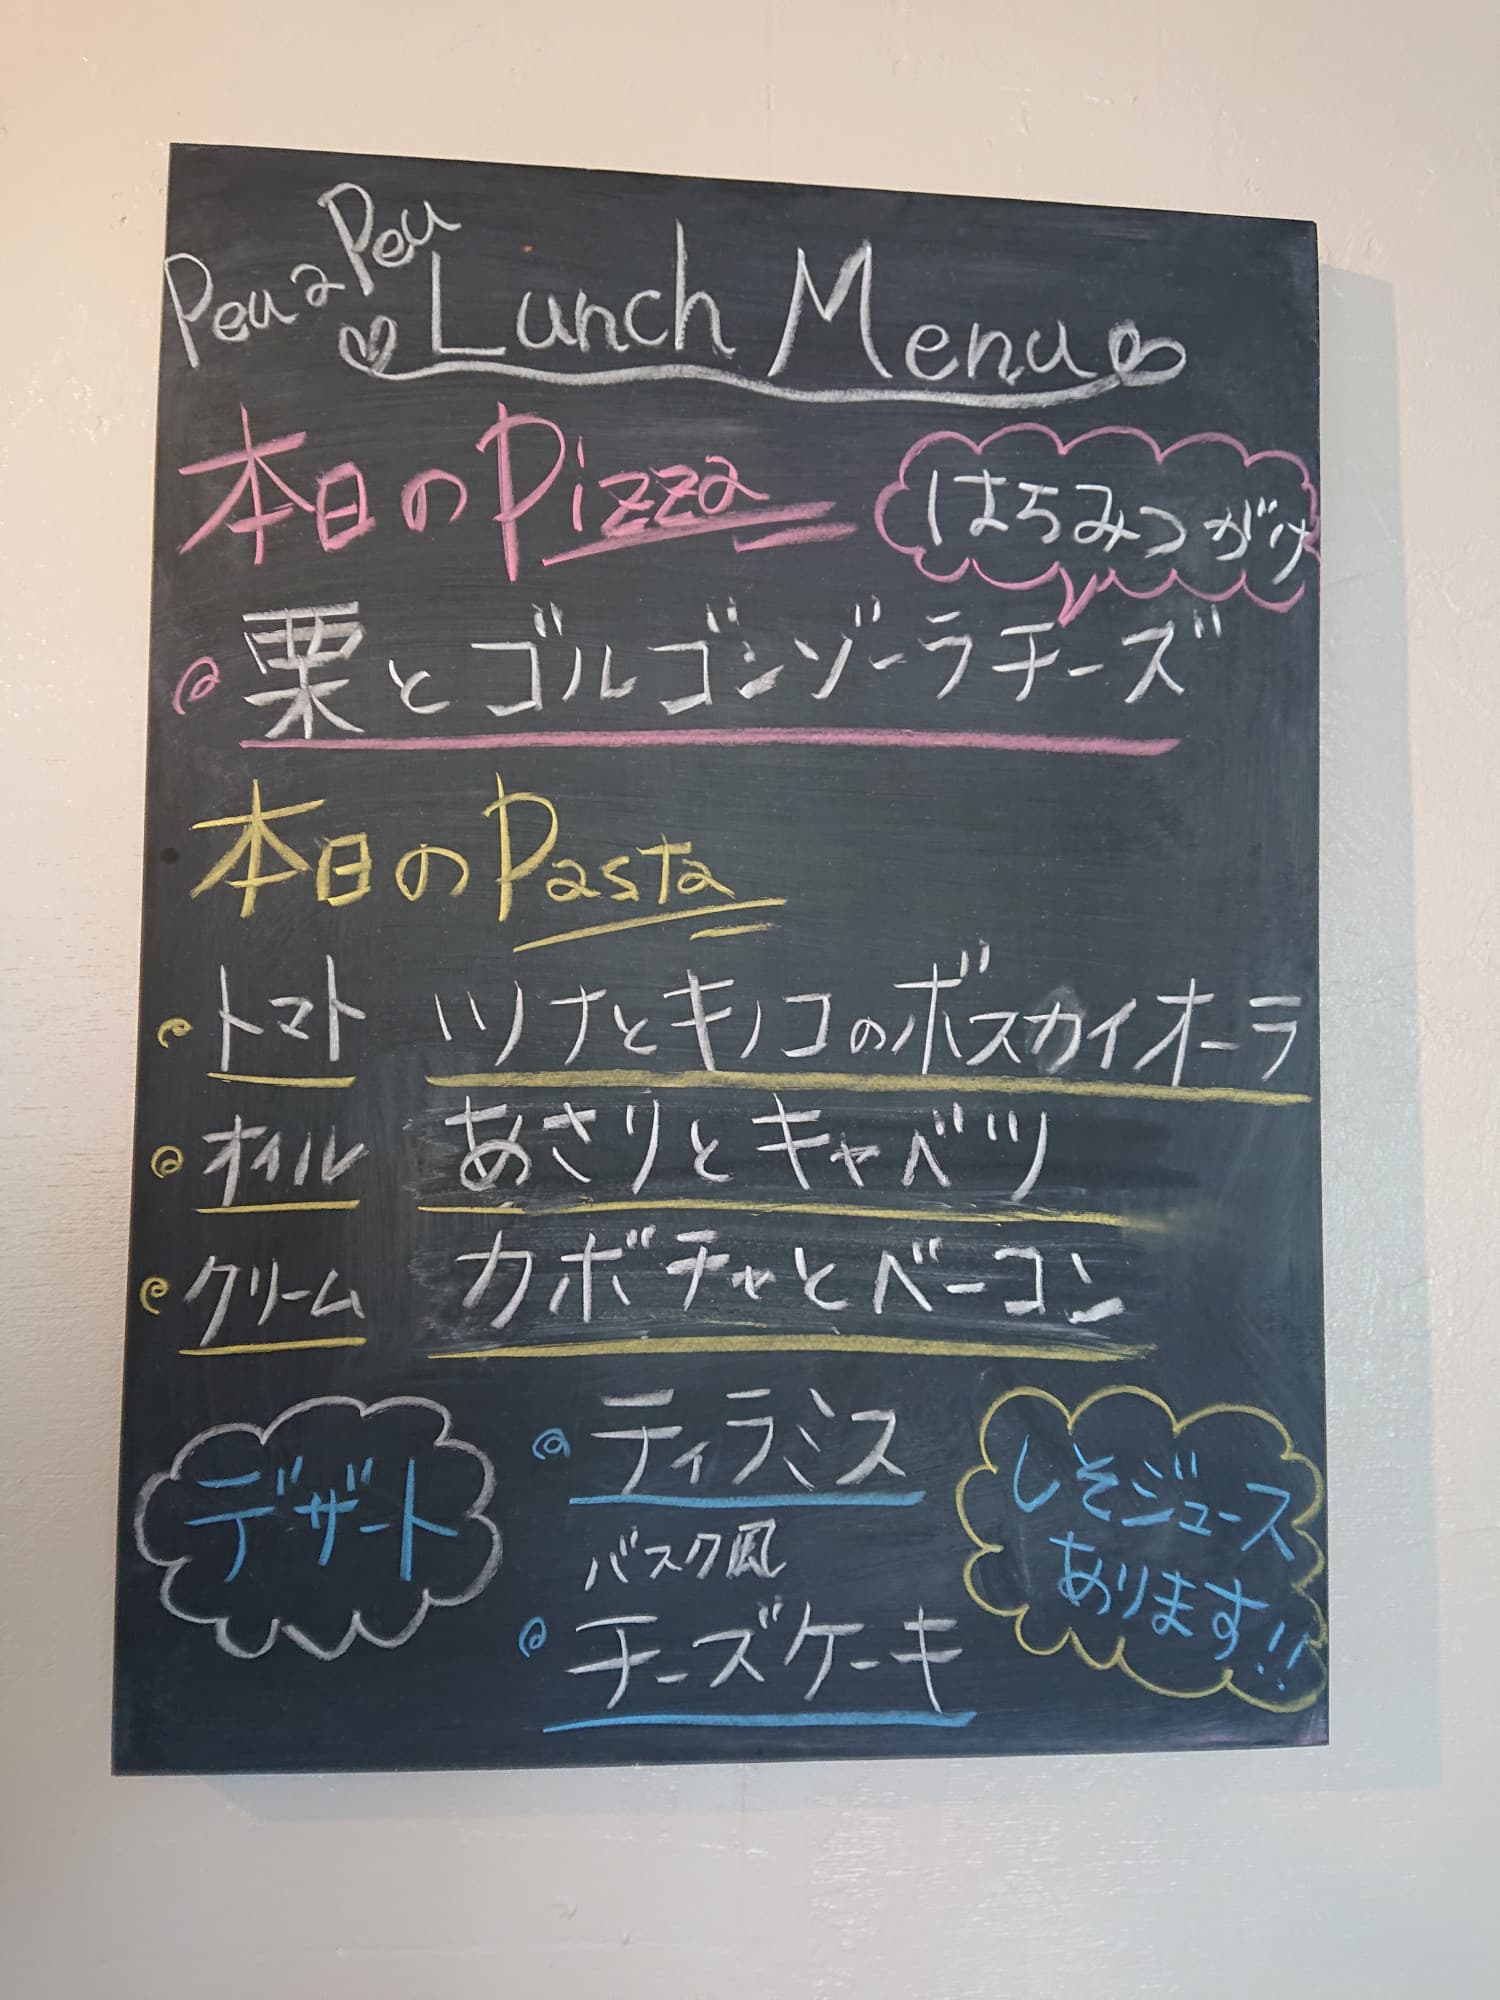 Peu a Peu
Lunch Menu
本日のPizza
はちみつがけ
栗とゴルゴンゾーラチーズ
本日のPasta
トマト ツナとキノコのボスカイオーラ
オイル あさりとキャベツ
クリーム カボチャとベーコン
デザート
ティラミス
バスク風
チーズケーキ
しそジュース
あります!!